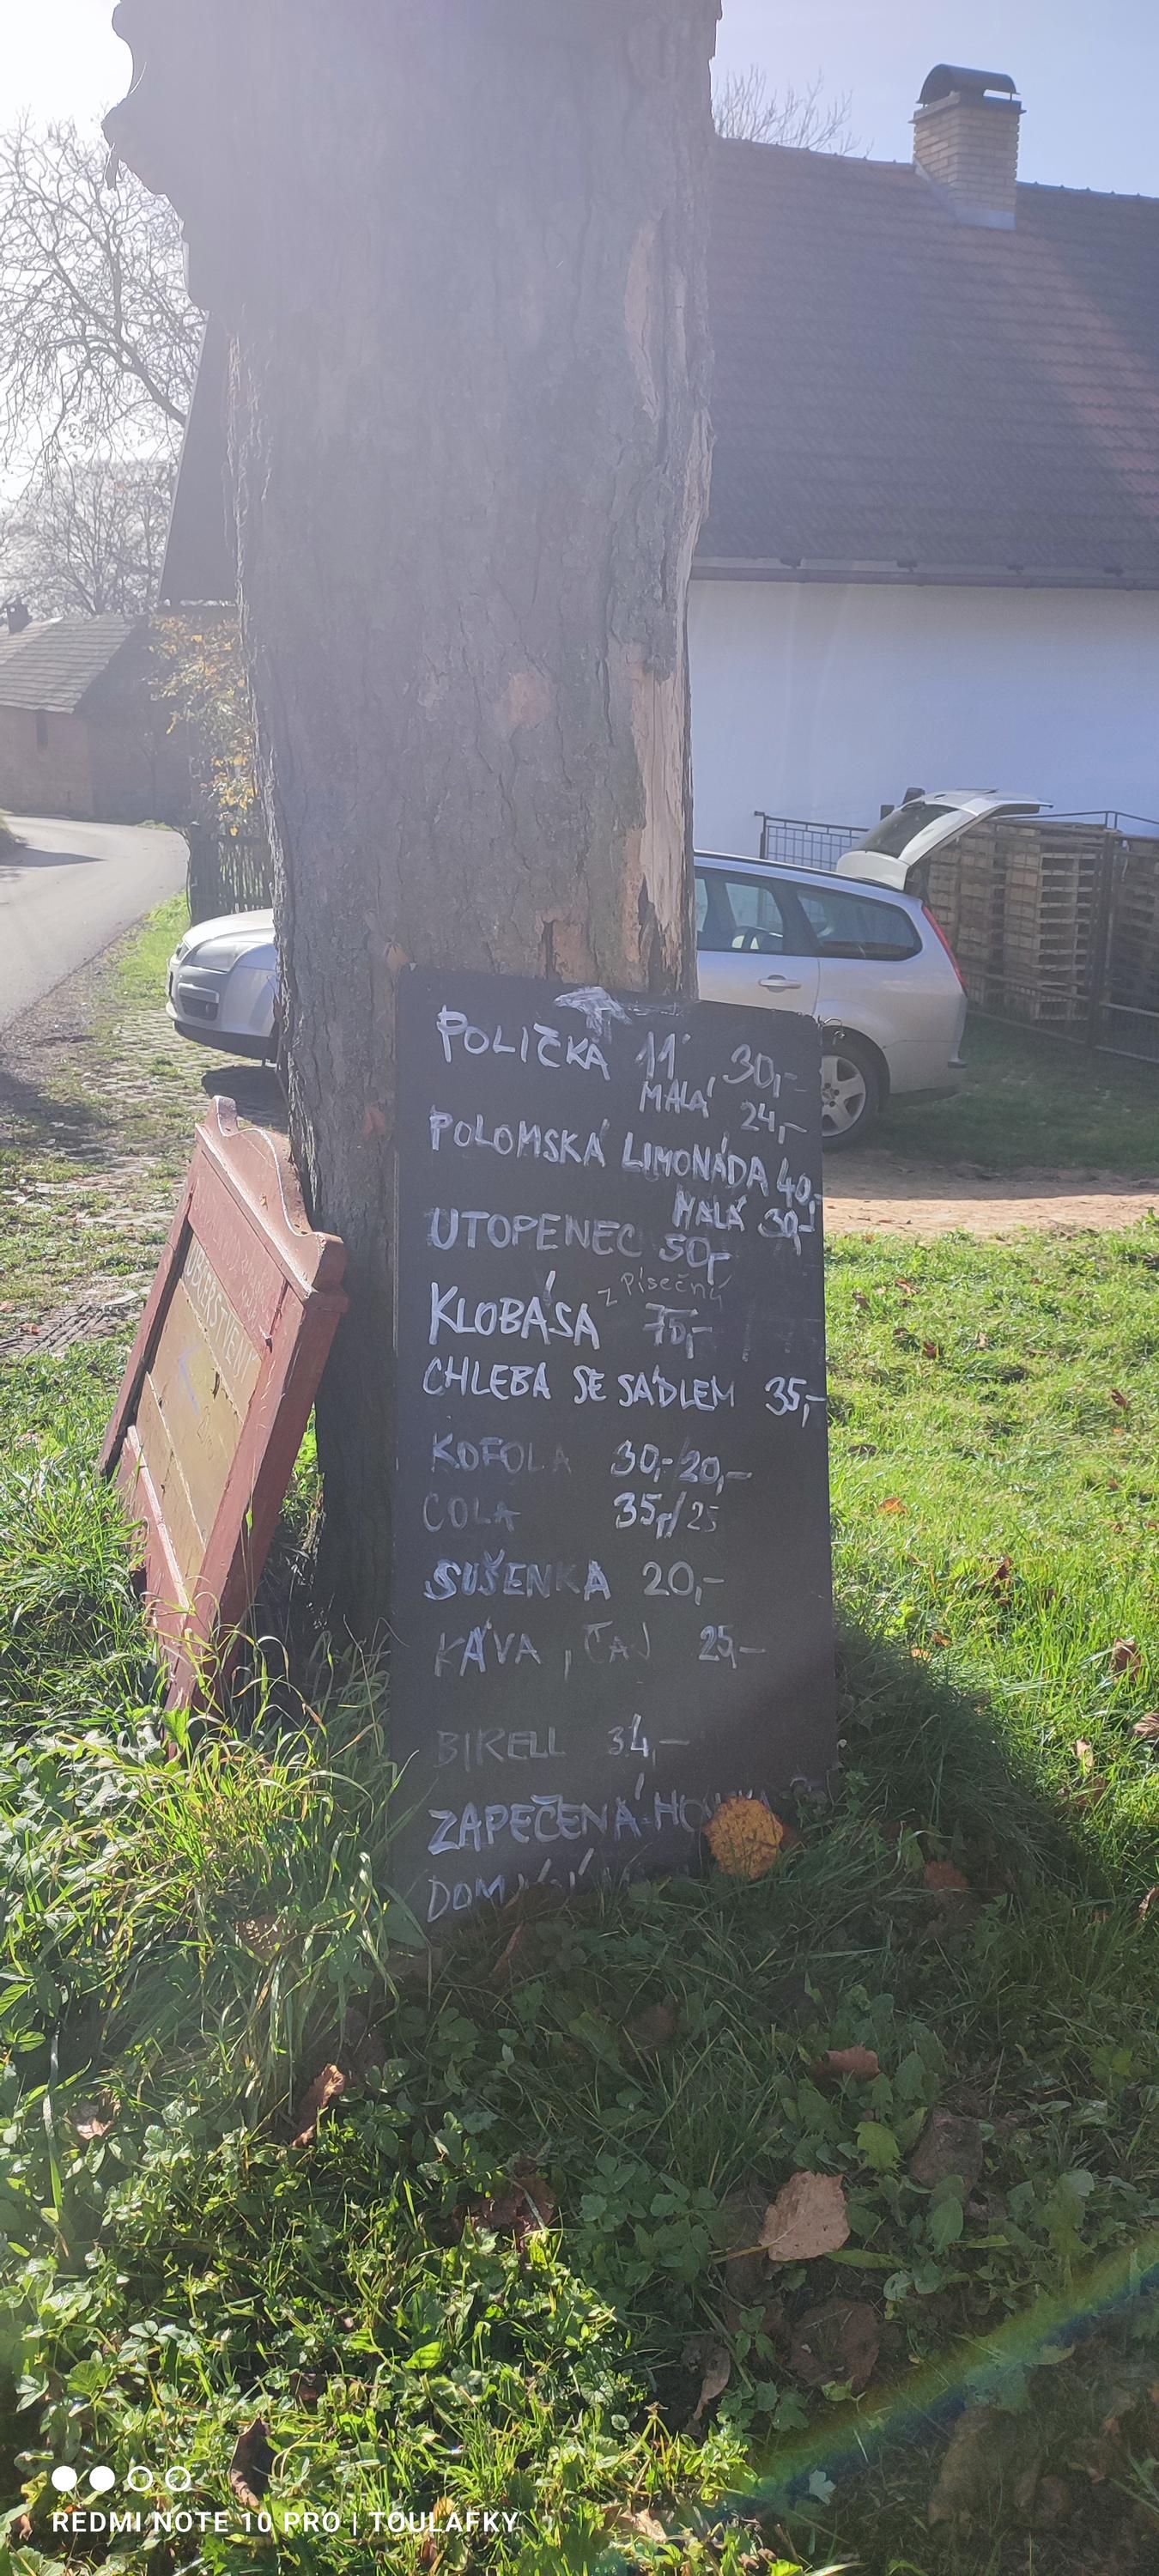 POLIČKA 11° 30,-
MALÁ 24,-
POLOMSKÁ LIMONÁDA 40,-
MALÁ 30,-
UTOPENEC 50,-
z Písečný
KLOBÁSA 75,-
CHLEBA SE SÁDLEM 35,-
KOFOLA 30,-/20,-
COLA 35,-/25
SUŠENKA 20,-
KÁVA, ČAJ 25,-
BIRELL 34,-
ZAPEČENÁ
OBČERSTVENÍ
REDMI NOTE 10 PRO | TOULAFKY